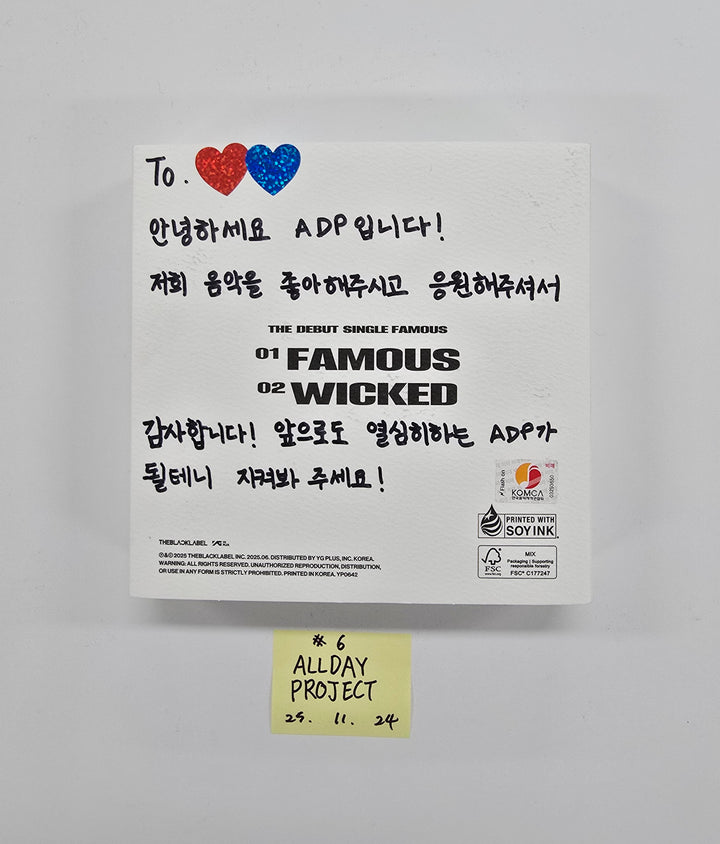 To.
안녕하세요 ADP입니다!
저희 음악을 좋아해주시고 응원해주셔서
THE DEBUT SINGLE FAMOUS
01 FAMOUS
02 WICKED
감사합니다! 앞으로도 열심히하는 ADP가
될테니 지켜봐 주세요!
KOMCA
한국음악저작권협회
PRINTED WITH
SOY INK
THEBLACKLABEL
FSC
www.fsc.org
MIX
Packaging | Supporting
responsible forestry
FSC® C177247
℗&© 2025 THEBLACKLABEL INC. 2025.06. DISTRIBUTED BY YG PLUS, INC. KOREA.
WARNING: ALL RIGHTS RESERVED. UNAUTHORIZED REPRODUCTION, DISTRIBUTION,
OR USE IN ANY FORM IS STRICTLY PROHIBITED. PRINTED IN KOREA. YP0642
# 6
ALLDAY
PROJECT
25. 11. 24